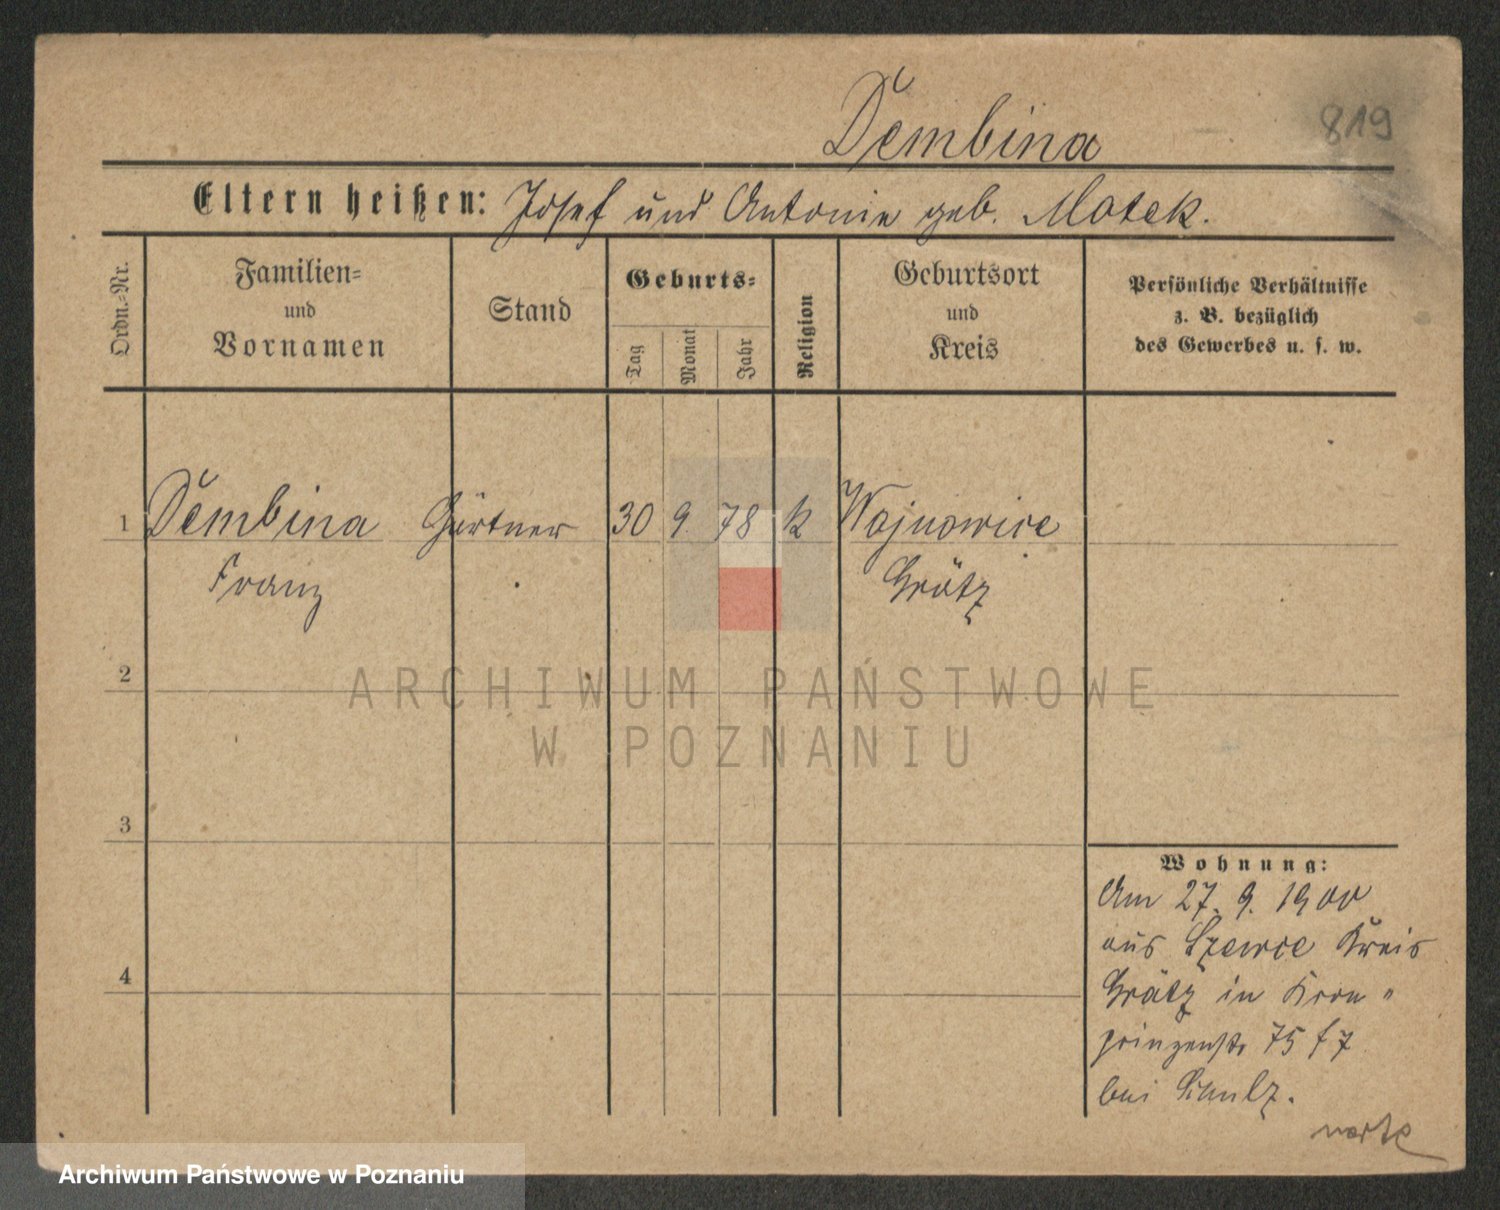 819
Dembina
Eltern heißen: Josef und Antonie geb. Matek.
Ordn.=Nr.
Familien=
und
Vornamen
Stand
Geburts=
Tag
Monat
Jahr
Religion
Geburtsort
und
Kreis
Persönliche Verhältnisse
z. B. bezüglich
des Gewerbes u. s. w.
1 Dembina Gärtner 30 9 78 k Wojnowice
Franz Grätz
2
ARCHIWUM PAŃSTWOWE
W POZNANIU
3
Wohnung:
Am 27. 9. 1900
aus Szewce Kreis
Grätz in Kron"
4
prinzenstr 75 f 7
bei
Archiwum Państwowe w Poznaniu